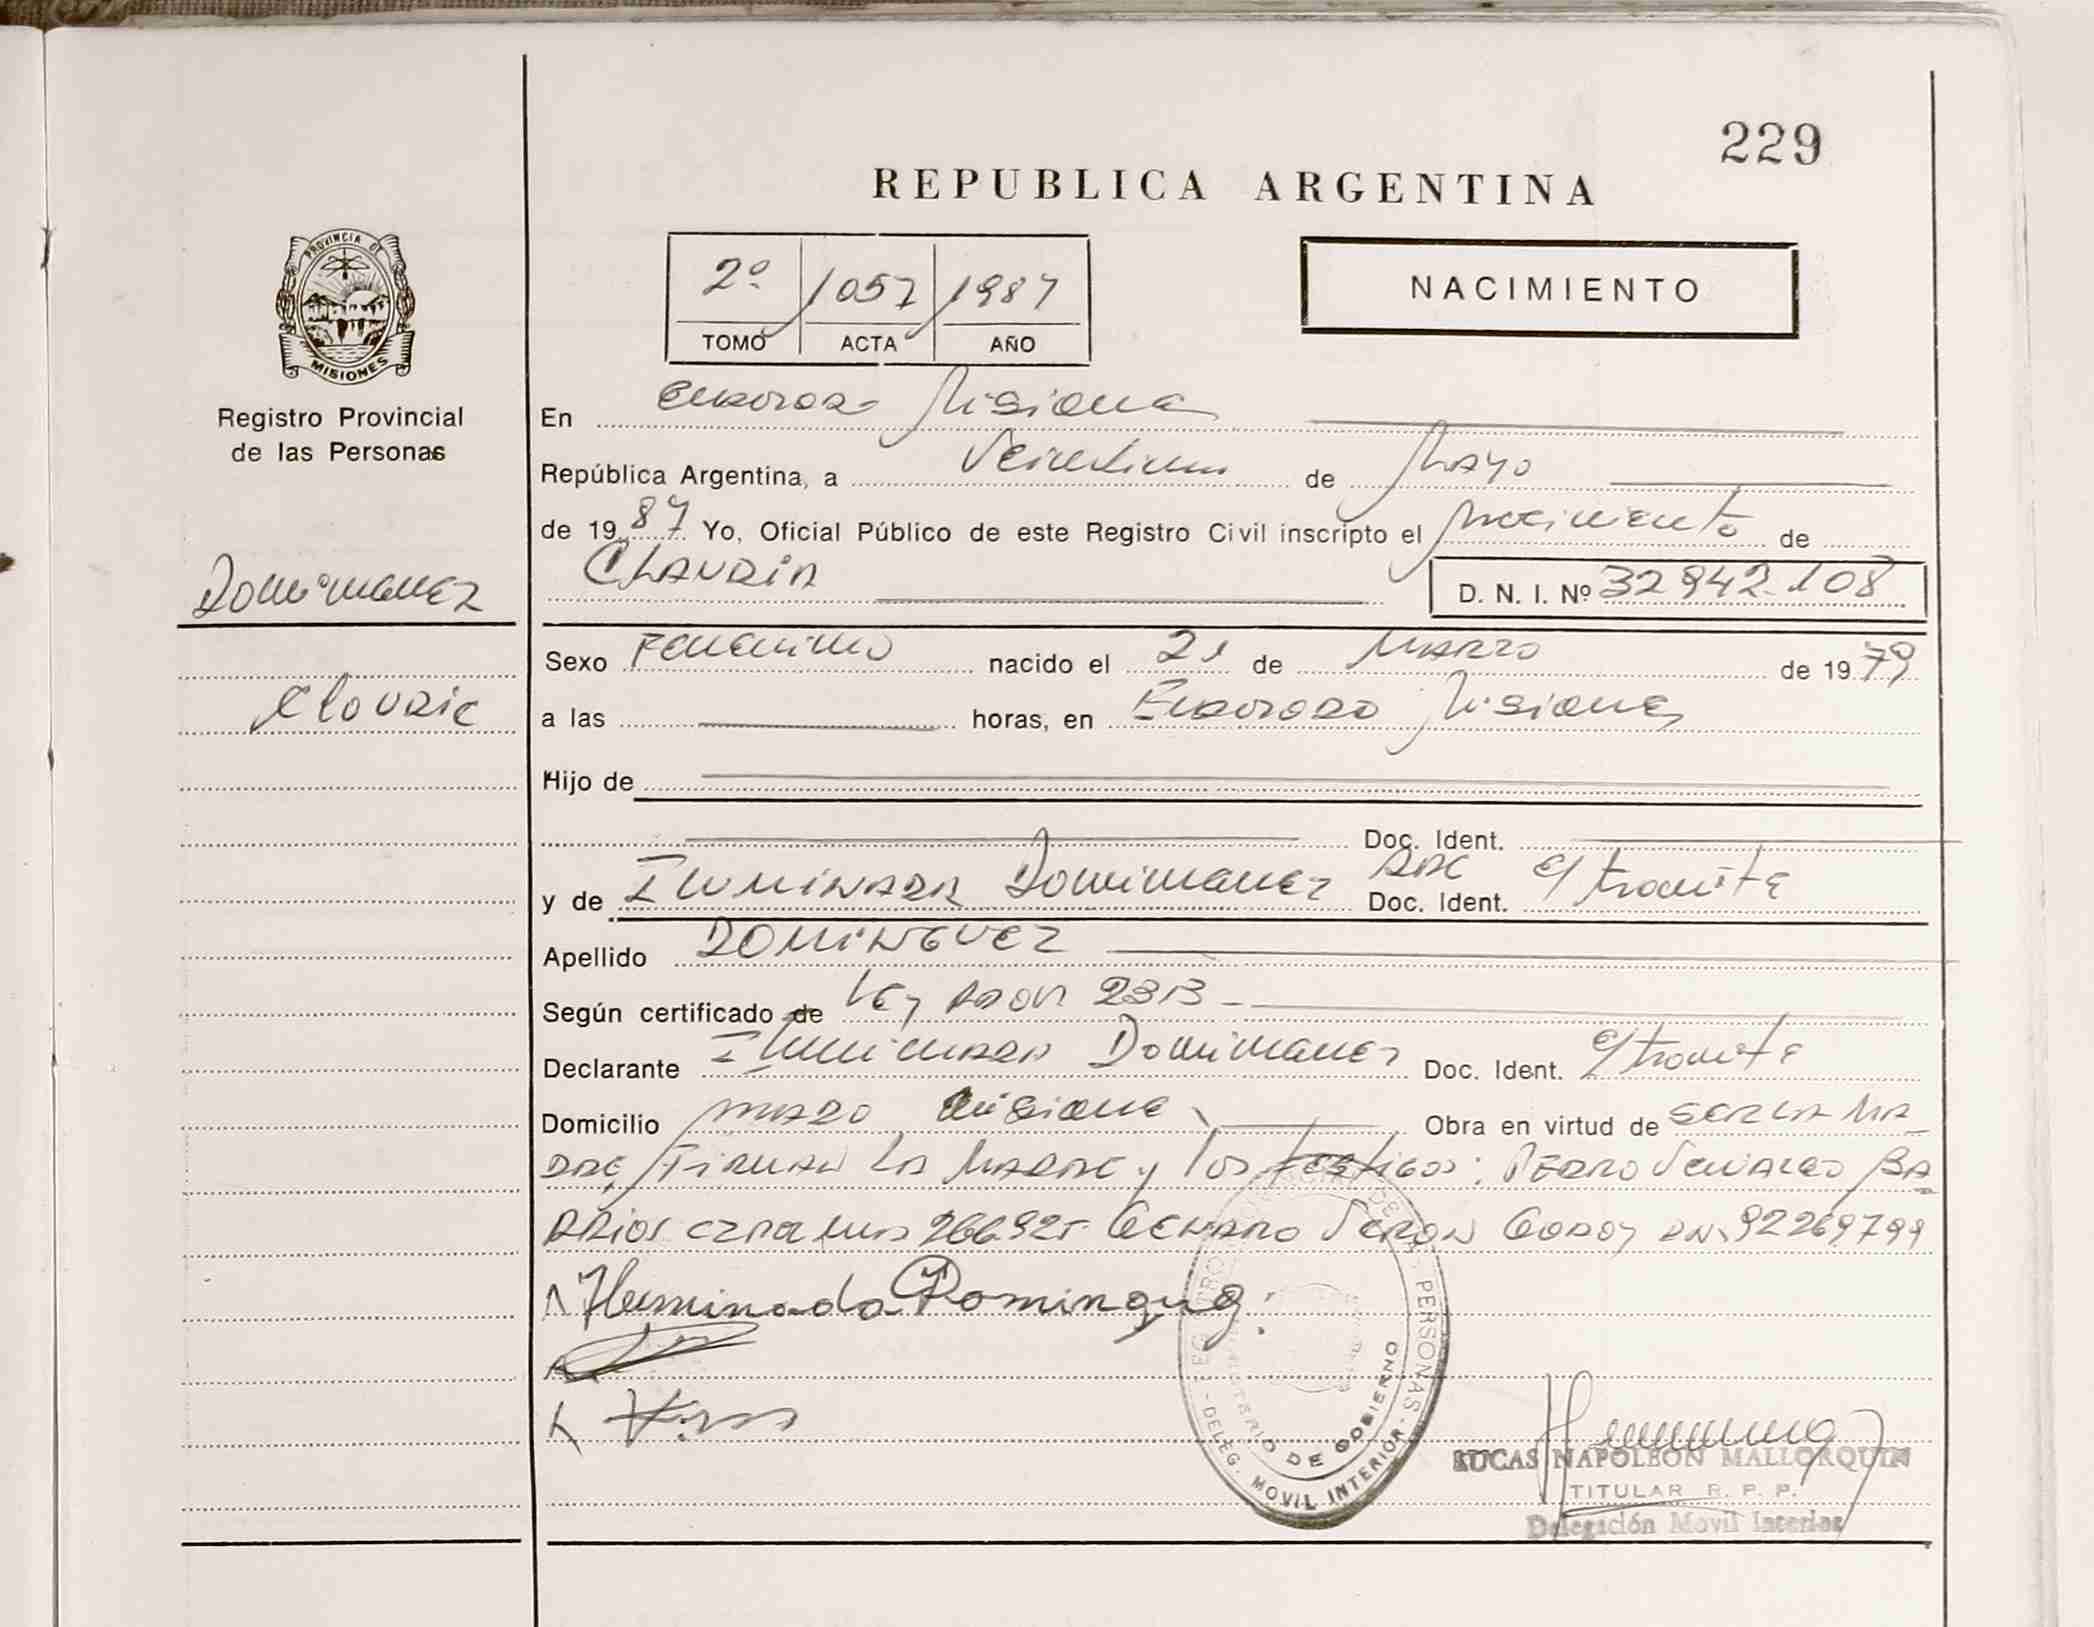 229
REPUBLICA ARGENTINA
PROVINCIA DE
MISIONES
Registro Provincial
de las Personas
2º 1057 1987
TOMO ACTA AÑO
NACIMIENTO
En Eldorado Misiones
República Argentina, a de Mayo
de 1987 Yo, Oficial Público de este Registro Civil inscripto el Nacimiento de
CLAUDIA
D. N. I. Nº 32942.108
Dominguez
Claudia
Sexo Femenino nacido el 21 de MARZO de 1979
a las horas, en Eldorado Misiones
Hijo de
Doc. Ident.
y de ILUMINADA Dominguez Doc. Ident. e/tramite
Apellido DOMINGUEZ
Según certificado de Ley
Declarante Iluminada Dominguez Doc. Ident. e/tramite
Domicilio Misiones Obra en virtud de SER LA MA
DRE, FIRMAN LA MADRE y los testigos: PEDRO BA
RRIOS GENARO VERON GODOY DNI 92269799
Iluminada Domingug
REGISTRO PROVINCIAL DE LAS PERSONAS - DELEG. MOVIL INTERIOR -
MINISTERIO DE GOBIERNO
LUCAS NAPOLEON MALLORQUIN
TITULAR R. P. P.
Delegación Movil Interior